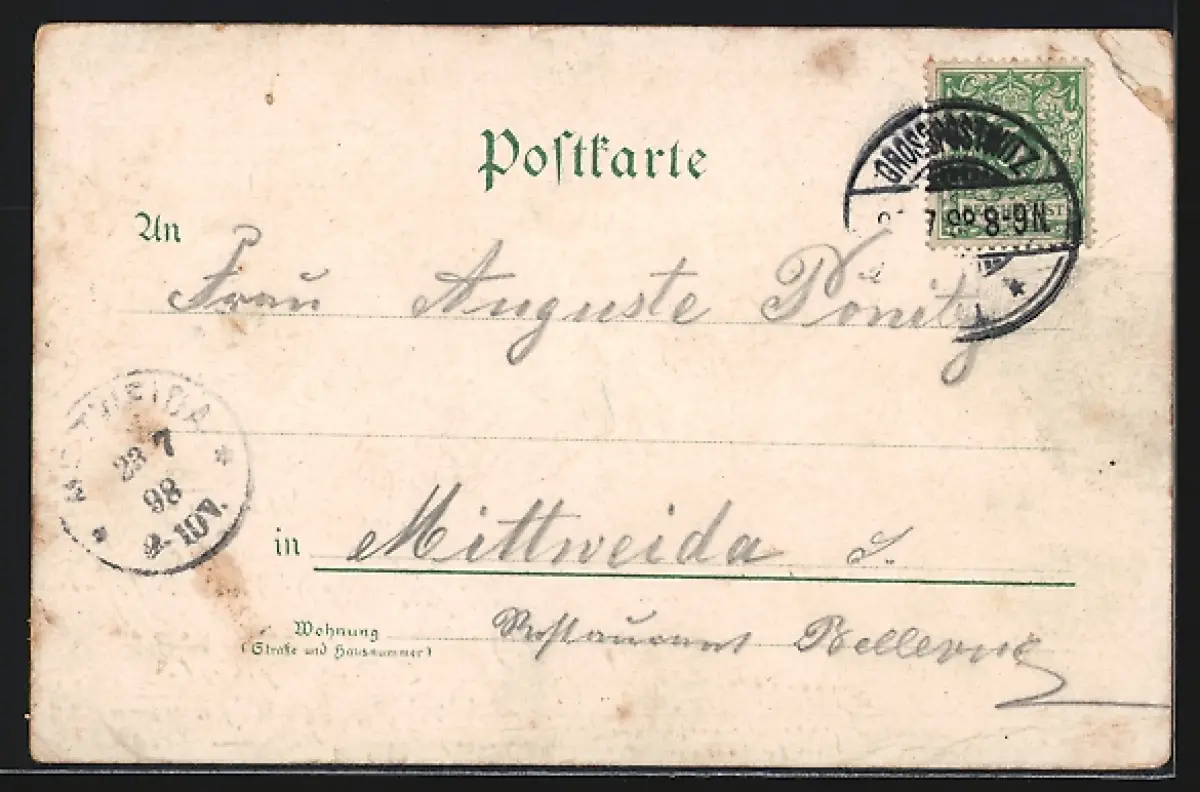 Postkarte
GROSSPOSTWITZ
7 98 8-9N
An
Frau Auguste Pönitz
MITTWEIDA
23 7
98
9-10V.
in Mittweida S.
Wohnung
(Straße und Hausnummer)
Restaurant Bellevue